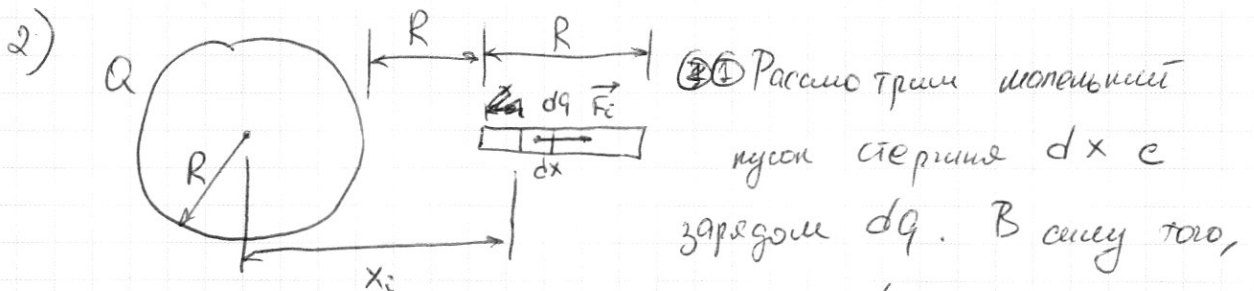 2)
Q
R
R
R
dq F⃗i
dx
xi
① Рассмотрим маленький
кусок стержня dx с
зарядом dq. В силу того,